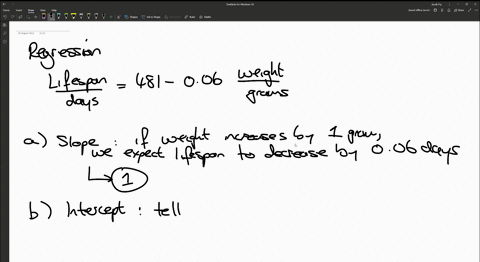 Regression
Lifespan/days = 481 - 0.06 weight/grams
a) Slope : if weight increases by 1 gram,
we expect lifespan to decrease by 0.06 days
↳ 1
b) Intercept : tell